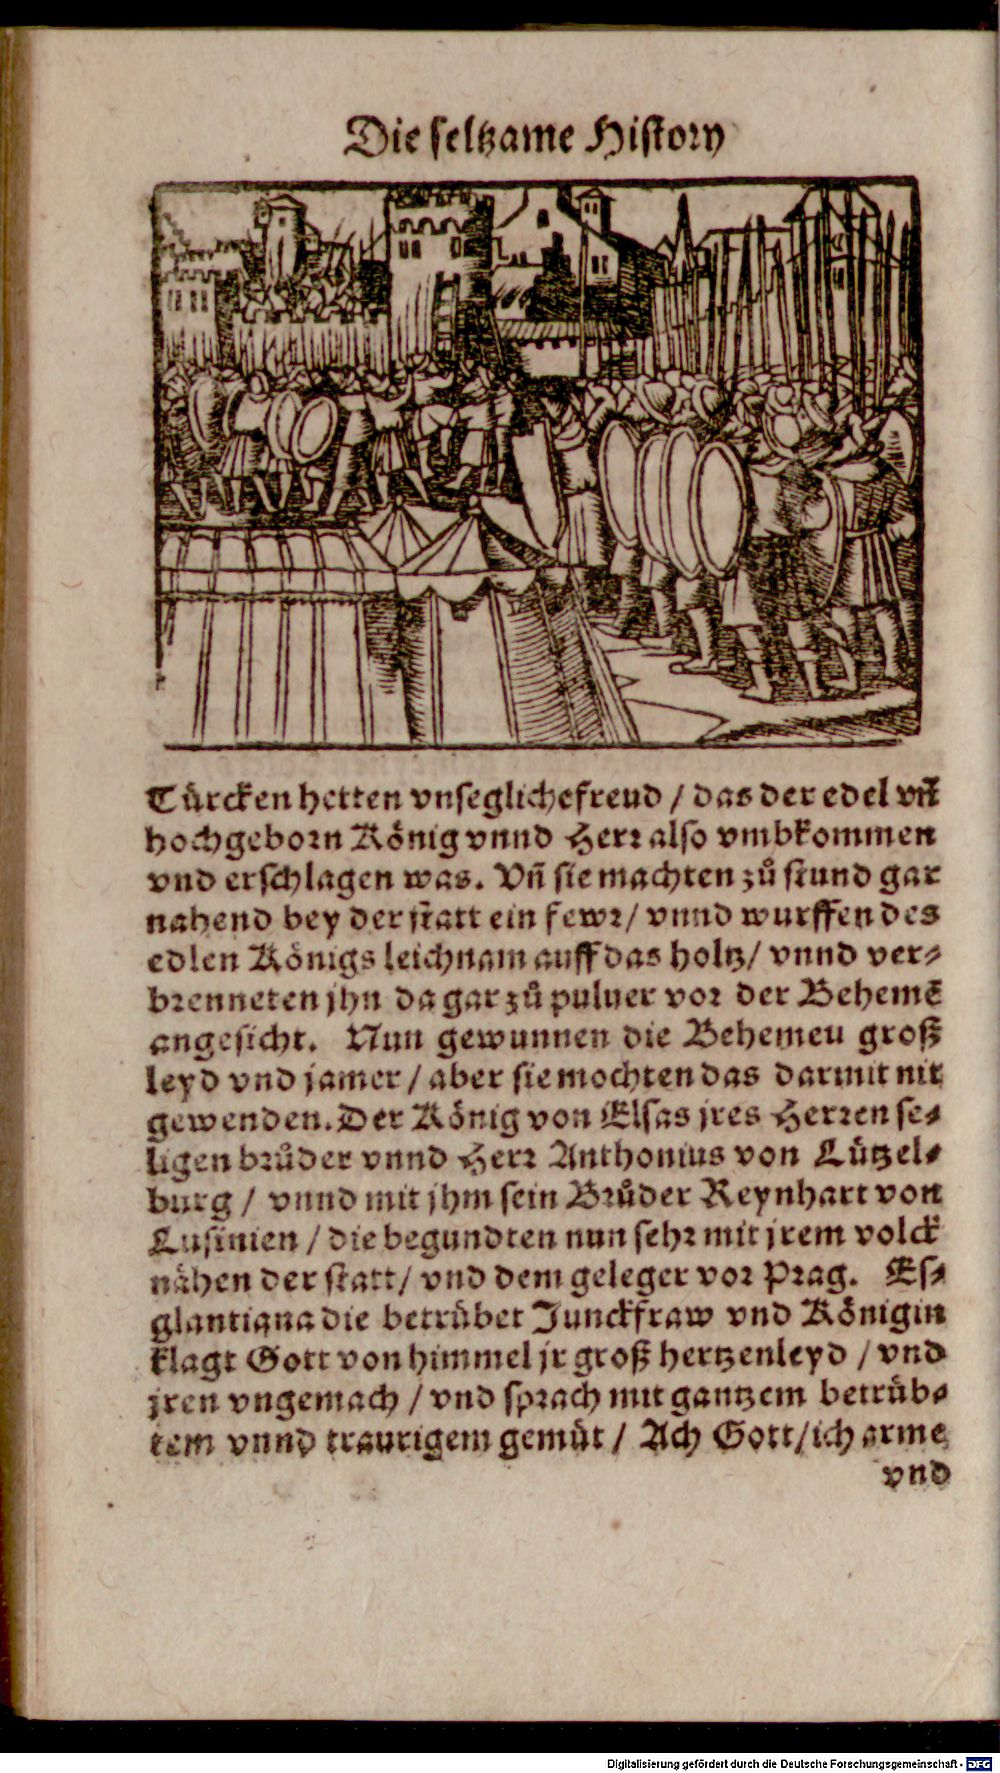 Die seltzame History
Türcken hetten vnseglichefreud / das der edel vñ
hochgeborn König vnnd Herr also vmbkommen
vnd erschlagen was. Vñ sie machten zů stund gar
nahend bey der statt ein fewr / vnnd wurffen des
edlen Königs leichnam auff das holtz / vnnd ver-
brenneten jhn da gar zů puluer vor der Behemẽ
angesicht. Nun gewunnen die Behemeu groß
leyd vnd jamer / aber sie mochten das darmit nit
gewenden. Der König von Elsas jres Herren se-
ligen brůder vnnd Herr Anthonius von Lützel-
burg / vnnd mit jhm sein Brůder Reynhart von
Lusinien / die begundten nun sehr mit jrem volck
nähen der statt / vnd dem geleger vor Prag. Es-
glantiana die betrübet Junckfraw vnd Königin
klagt Gott von himmel jr groß hertzenleyd / vnd
jren vngemach / vnd sprach mit gantzem betrüb-
tem vnnd traurigem gemüt / Ach Gott / ich arme
vnd
Digitalisierung gefördert durch die Deutsche Forschungsgemeinschaft - DFG